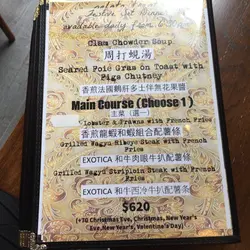 Festive Set Dinner
available daily from
Clam Chowder Soup
周打蜆湯
Seared Foie Gras on Toast with
Figs Chutney
香煎法國鵝肝多士伴無花果醬
Main Course (Choose 1)
主菜（選一）
Lobster & Prawns with French Fries
香煎龍蝦和蝦組合配薯條
Grilled Wagyu Ribeye Steak with French
Fries
EXOTICA 和牛肉眼牛扒配薯條
Grilled Wagyu Striploin Steak with French
Fries
EXOTICA 和牛西冷牛扒配薯条
$620
(+70 Christmas Eve, Christmas, New Year's
Eve, New Year's, Valentine's Day)